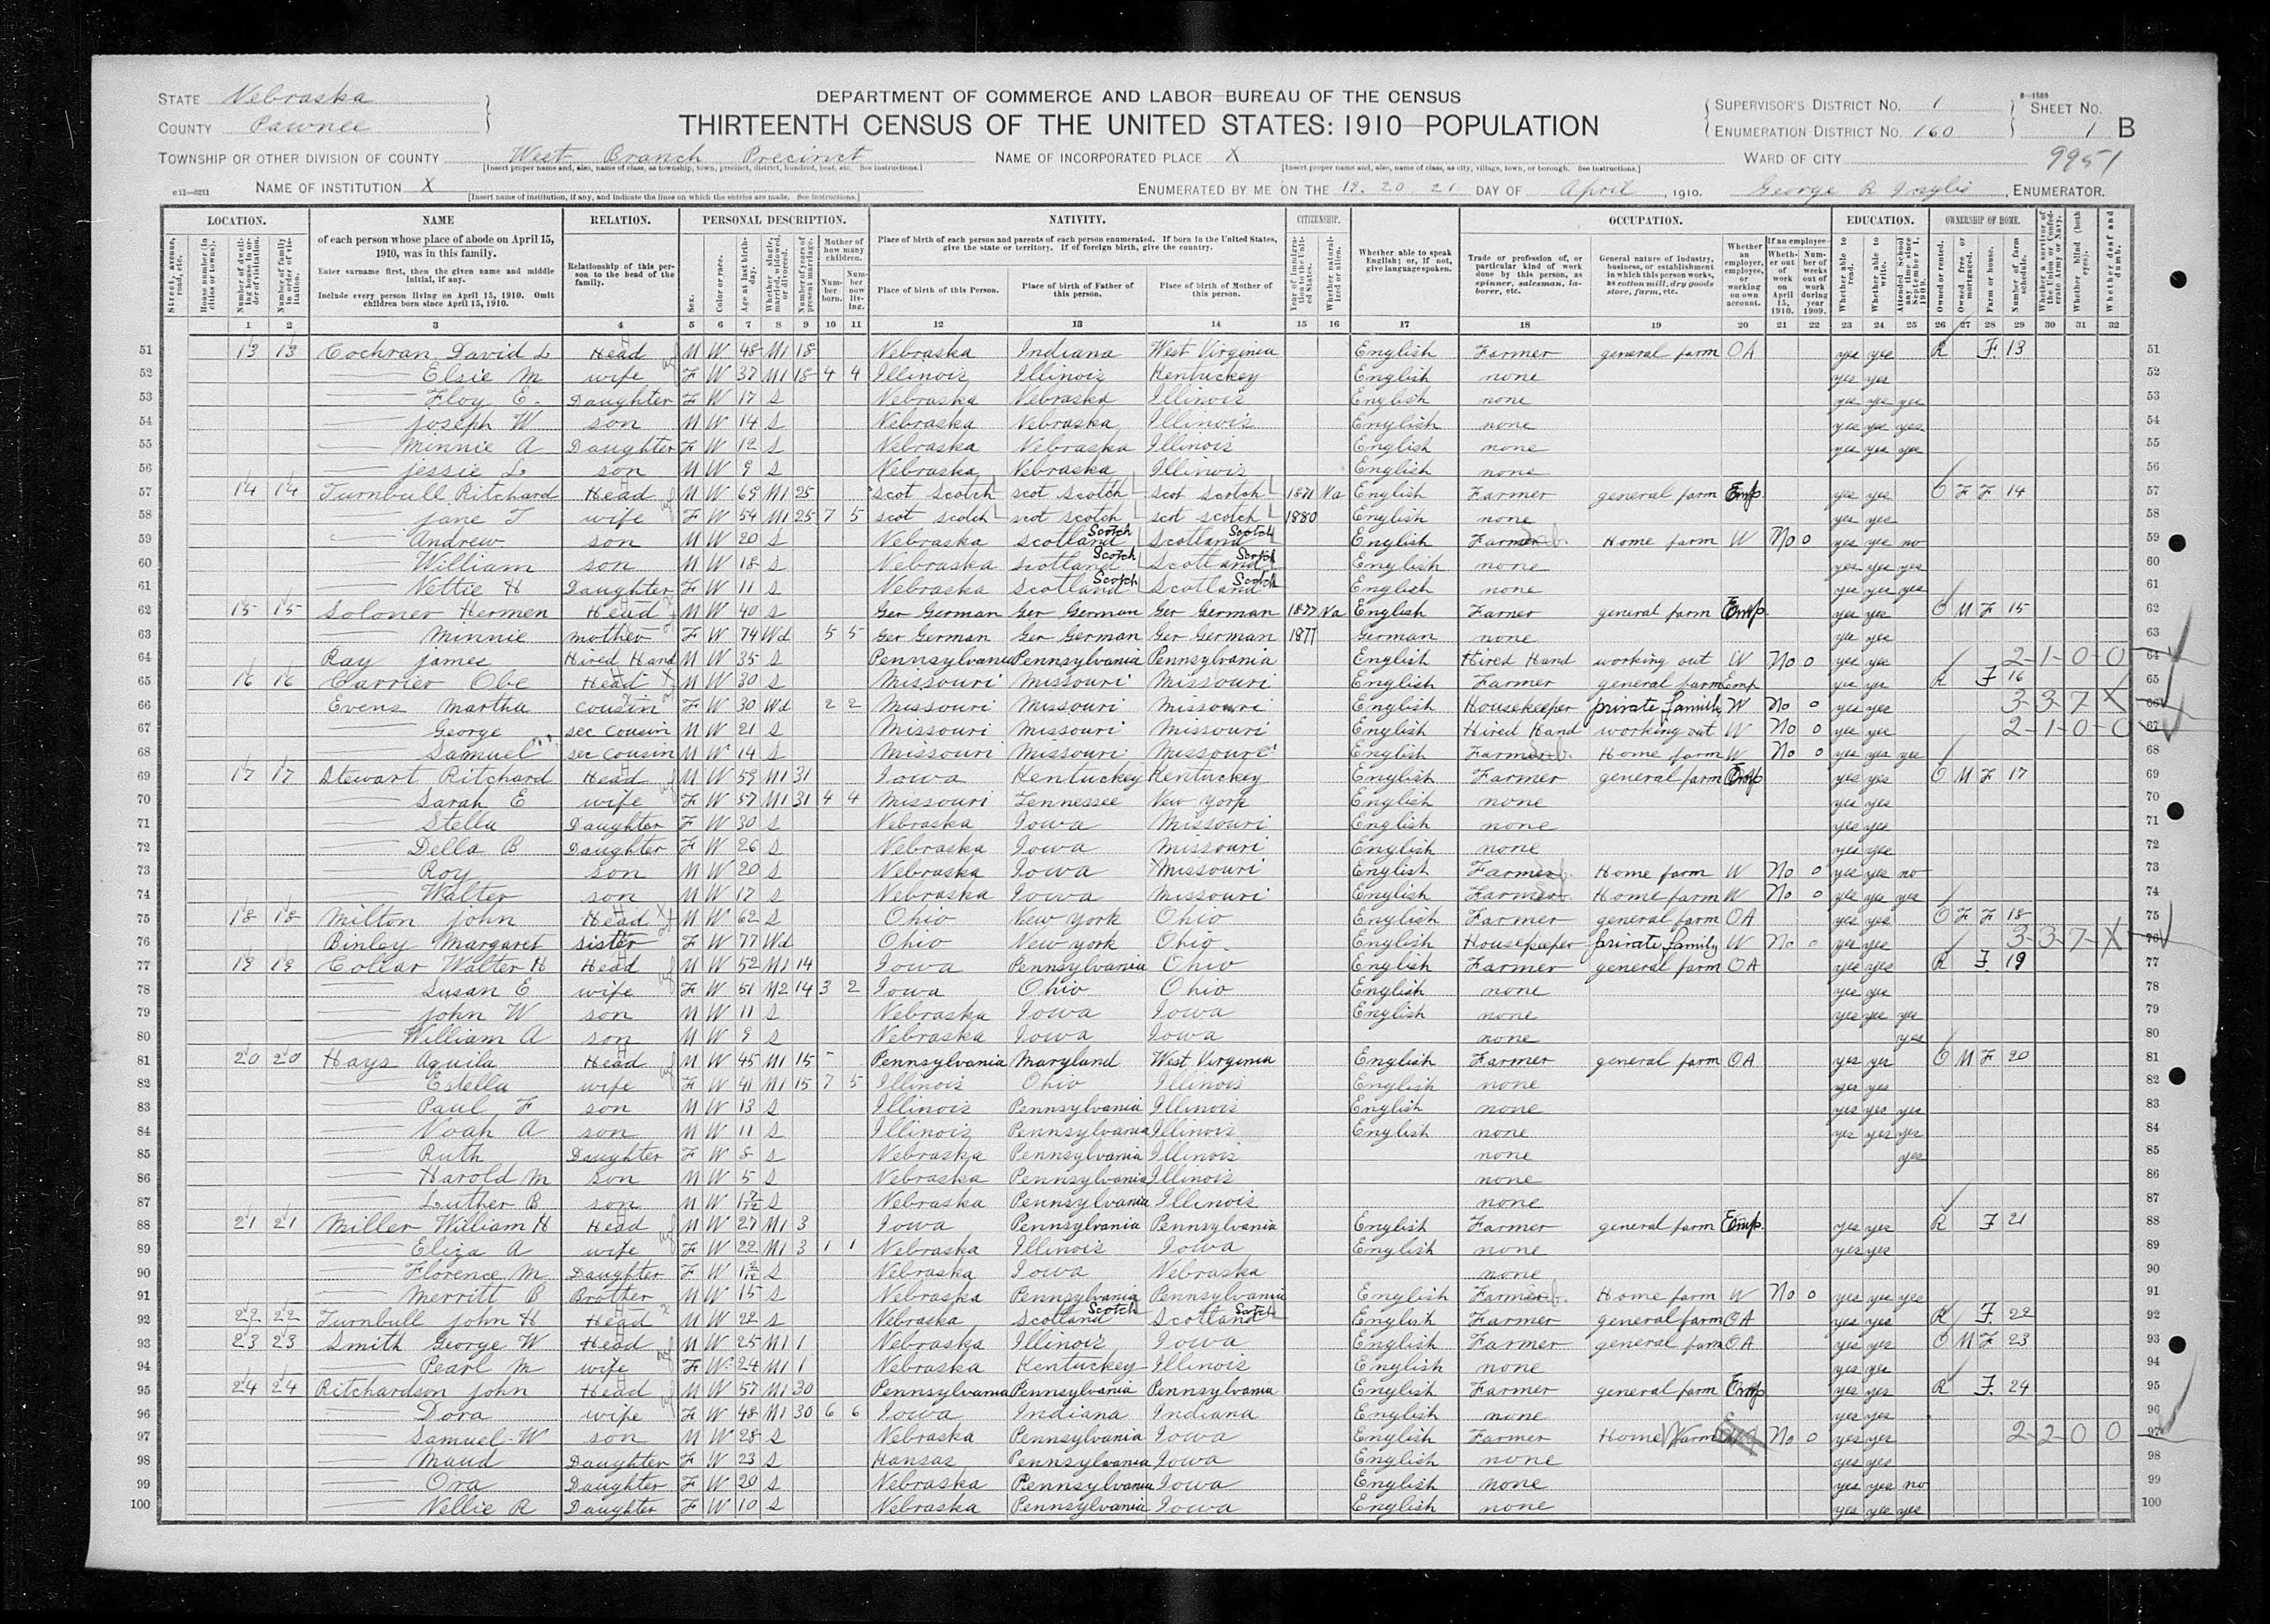 STATE Nebraska
COUNTY Pawnee
DEPARTMENT OF COMMERCE AND LABOR—BUREAU OF THE CENSUS
THIRTEENTH CENSUS OF THE UNITED STATES: 1910—POPULATION
SUPERVISOR'S DISTRICT NO. 1
ENUMERATION DISTRICT NO. 160
SHEET NO. 1 B
9951
TOWNSHIP OR OTHER DIVISION OF COUNTY West Branch Precinct
NAME OF INCORPORATED PLACE X
WARD OF CITY
NAME OF INSTITUTION X
ENUMERATED BY ME ON THE 19. 20 21 DAY OF April, 1910. George R Inglis, ENUMERATOR.
LOCATION. NAME RELATION. PERSONAL DESCRIPTION. NATIVITY. CITIZENSHIP. OCCUPATION. EDUCATION. OWNERSHIP OF HOME.
of each person whose place of abode on April 15, 1910, was in this family.
Enter surname first, then the given name and middle initial, if any.
Include every person living on April 15, 1910. Omit children born since April 15, 1910.
Relationship of this person to the head of the family.
Place of birth of each person and parents of each person enumerated. If born in the United States, give the state or territory. If of foreign birth, give the country.
Place of birth of this Person. Place of birth of Father of this person. Place of birth of Mother of this person.
Whether able to speak English; or, if not, give language spoken.
1 2 3 4 5 6 7 8 9 10 11 12 13 14 15 16 17 18 19 20 21 22 23 24 25 26 27 28 29 30 31 32
51 13 13 Cochran David L Head M W 48 M1 18 Nebraska Indiana West Virginia English Farmer general farm OA yes yes R F 13 51
52 Elsie M wife F W 37 M1 18 4 4 Illinois Illinois Kentucky English none yes yes 52
53 Floy E. Daughter F W 17 S Nebraska Nebraska Illinois English none yes yes yes 53
54 Joseph W son M W 14 S Nebraska Nebraska Illinois English none yes yes yes 54
55 Minnie A Daughter F W 12 S Nebraska Nebraska Illinois English none yes yes yes 55
56 Jessie L son M W 9 S Nebraska Nebraska Illinois English none 56
57 14 14 Turnbull Ritchard Head M W 69 M1 25 scot scotch scot scotch scot scotch 1871 Na English Farmer general farm Emp yes yes O F F 14 57
58 Jane T wife F W 54 M1 25 7 5 scot scotch scot scotch scot scotch 1880 English none yes yes 58
59 Andrew son M W 20 S Nebraska Scotland Scotch Scotland Scotch English Farmer Home farm W No 0 yes yes no 59
60 William son M W 18 S Nebraska Scotland Scotch Scotland Scotch English none yes yes yes 60
61 Nettie H Daughter F W 11 S Nebraska Scotland Scotch Scotland Scotch English none yes yes yes 61
62 15 15 Soloner Hermen Head M W 40 S Ger German Ger German Ger German 1877 Na English Farmer general farm Emp yes yes O M F 15 62
63 Minnie mother F W 74 Wd 5 5 Ger German Ger German Ger German 1877 German none yes yes 63
64 Ray James Hired Hand M W 35 S Pennsylvania Pennsylvania Pennsylvania English Hired Hand working out W No 0 yes yes 2-1-0-0 64
65 16 16 Carrier Obe Head M W 30 S Missouri Missouri Missouri English Farmer general farm Emp yes yes R F 16 65
66 Evens Martha cousin F W 30 Wd 2 2 Missouri Missouri Missouri English Housekeeper private family W No 0 yes yes 3-3-7-X 66
67 George sec cousin M W 21 S Missouri Missouri Missouri English Hired Hand working out W No 0 yes yes 2-1-0-0 67
68 Samuel sec cousin M W 14 S Missouri Missouri Missouri English Farmer Home farm W No 0 yes yes yes 68
69 17 17 Stewart Ritchard Head M W 59 M1 31 Iowa Kentuckey Kentuckey English Farmer general farm Emp yes yes O M F 17 69
70 Sarah E wife F W 57 M1 31 4 4 Missouri Tennessee New York English none yes yes 70
71 Stella Daughter F W 30 S Nebraska Iowa Missouri English none yes yes 71
72 Della B Daughter F W 26 S Nebraska Iowa Missouri English none yes yes 72
73 Roy son M W 20 S Nebraska Iowa Missouri English Farmer Home farm W No 0 yes yes no 73
74 Walter son M W 17 S Nebraska Iowa Missouri English Farmer Home farm W No 0 yes yes yes 74
75 18 18 Milton John Head M W 62 S Ohio New York Ohio English Farmer general farm OA yes yes O F F 18 75
76 Binley Margaret sister F W 77 Wd Ohio New york Ohio English Housekeeper private family W No 0 yes yes 3-3-7-X 76
77 19 19 Collar Walter H Head M W 52 M1 14 Iowa Pennsylvania Ohio English Farmer general farm OA yes yes R F 19 77
78 Susan E wife F W 51 M2 14 3 2 Iowa Ohio Ohio English none yes yes 78
79 John W son M W 11 S Nebraska Iowa Iowa English none yes yes yes 79
80 William A son M W 9 S Nebraska Iowa Iowa none yes 80
81 20 20 Hays Aquila Head M W 45 M1 15 Pennsylvania Maryland West Virginia English Farmer general farm OA yes yes O M F 20 81
82 Estella wife F W 41 M1 15 7 5 Illinois Ohio Illinois English none yes yes 82
83 Paul F son M W 13 S Illinois Pennsylvania Illinois English none yes yes yes 83
84 Noah A son M W 11 S Illinois Pennsylvania Illinois English none yes yes yes 84
85 Ruth Daughter F W 8 S Nebraska Pennsylvania Illinois none yes 85
86 Harold M son M W 5 S Nebraska Pennsylvania Illinois none 86
87 Luther B son M W 1 7/12 S Nebraska Pennsylvania Illinois none 87
88 21 21 Miller William H Head M W 27 M1 3 Iowa Pennsylvania Pennsylvania English Farmer general farm Emp. yes yes R F 21 88
89 Eliza A wife F W 22 M1 3 1 1 Nebraska Illinois Iowa English none yes yes 89
90 Florence M Daughter F W 1 2/12 S Nebraska Iowa Nebraska none 90
91 Merritt B Brother M W 15 S Nebraska Pennsylvania Pennsylvania English Farmer Home farm W No 0 yes yes yes 91
92 22 22 Turnbull John H Head M W 22 S Nebraska Scotland Scotch Scotland Scotch English Farmer general farm OA yes yes R F 22 92
93 23 23 Smith George W Head M W 25 M1 1 Nebraska Illinois Iowa English Farmer general farm OA yes yes O M F 23 93
94 Pearl M wife F W 24 M1 1 Nebraska Kentuckey Illinois English none yes yes 94
95 24 24 Ritchardson John Head M W 57 M1 30 Pennsylvania Pennsylvania Pennsylvania English Farmer general farm Emp yes yes R F 24 95
96 Dora wife F W 48 M1 30 6 6 Iowa Indiana Indiana English none yes yes 96
97 Samuel W son M W 28 S Nebraska Pennsylvania Iowa English Farmer Home farm No 0 yes yes 2-2-0 0 97
98 Maud Daughter F W 23 S Kansas Pennsylvania Iowa English none yes yes 98
99 Ora Daughter F W 20 S Nebraska Pennsylvania Iowa English none yes yes no 99
100 Nellie R Daughter F W 10 S Nebraska Pennsylvania Iowa English none yes yes yes 100